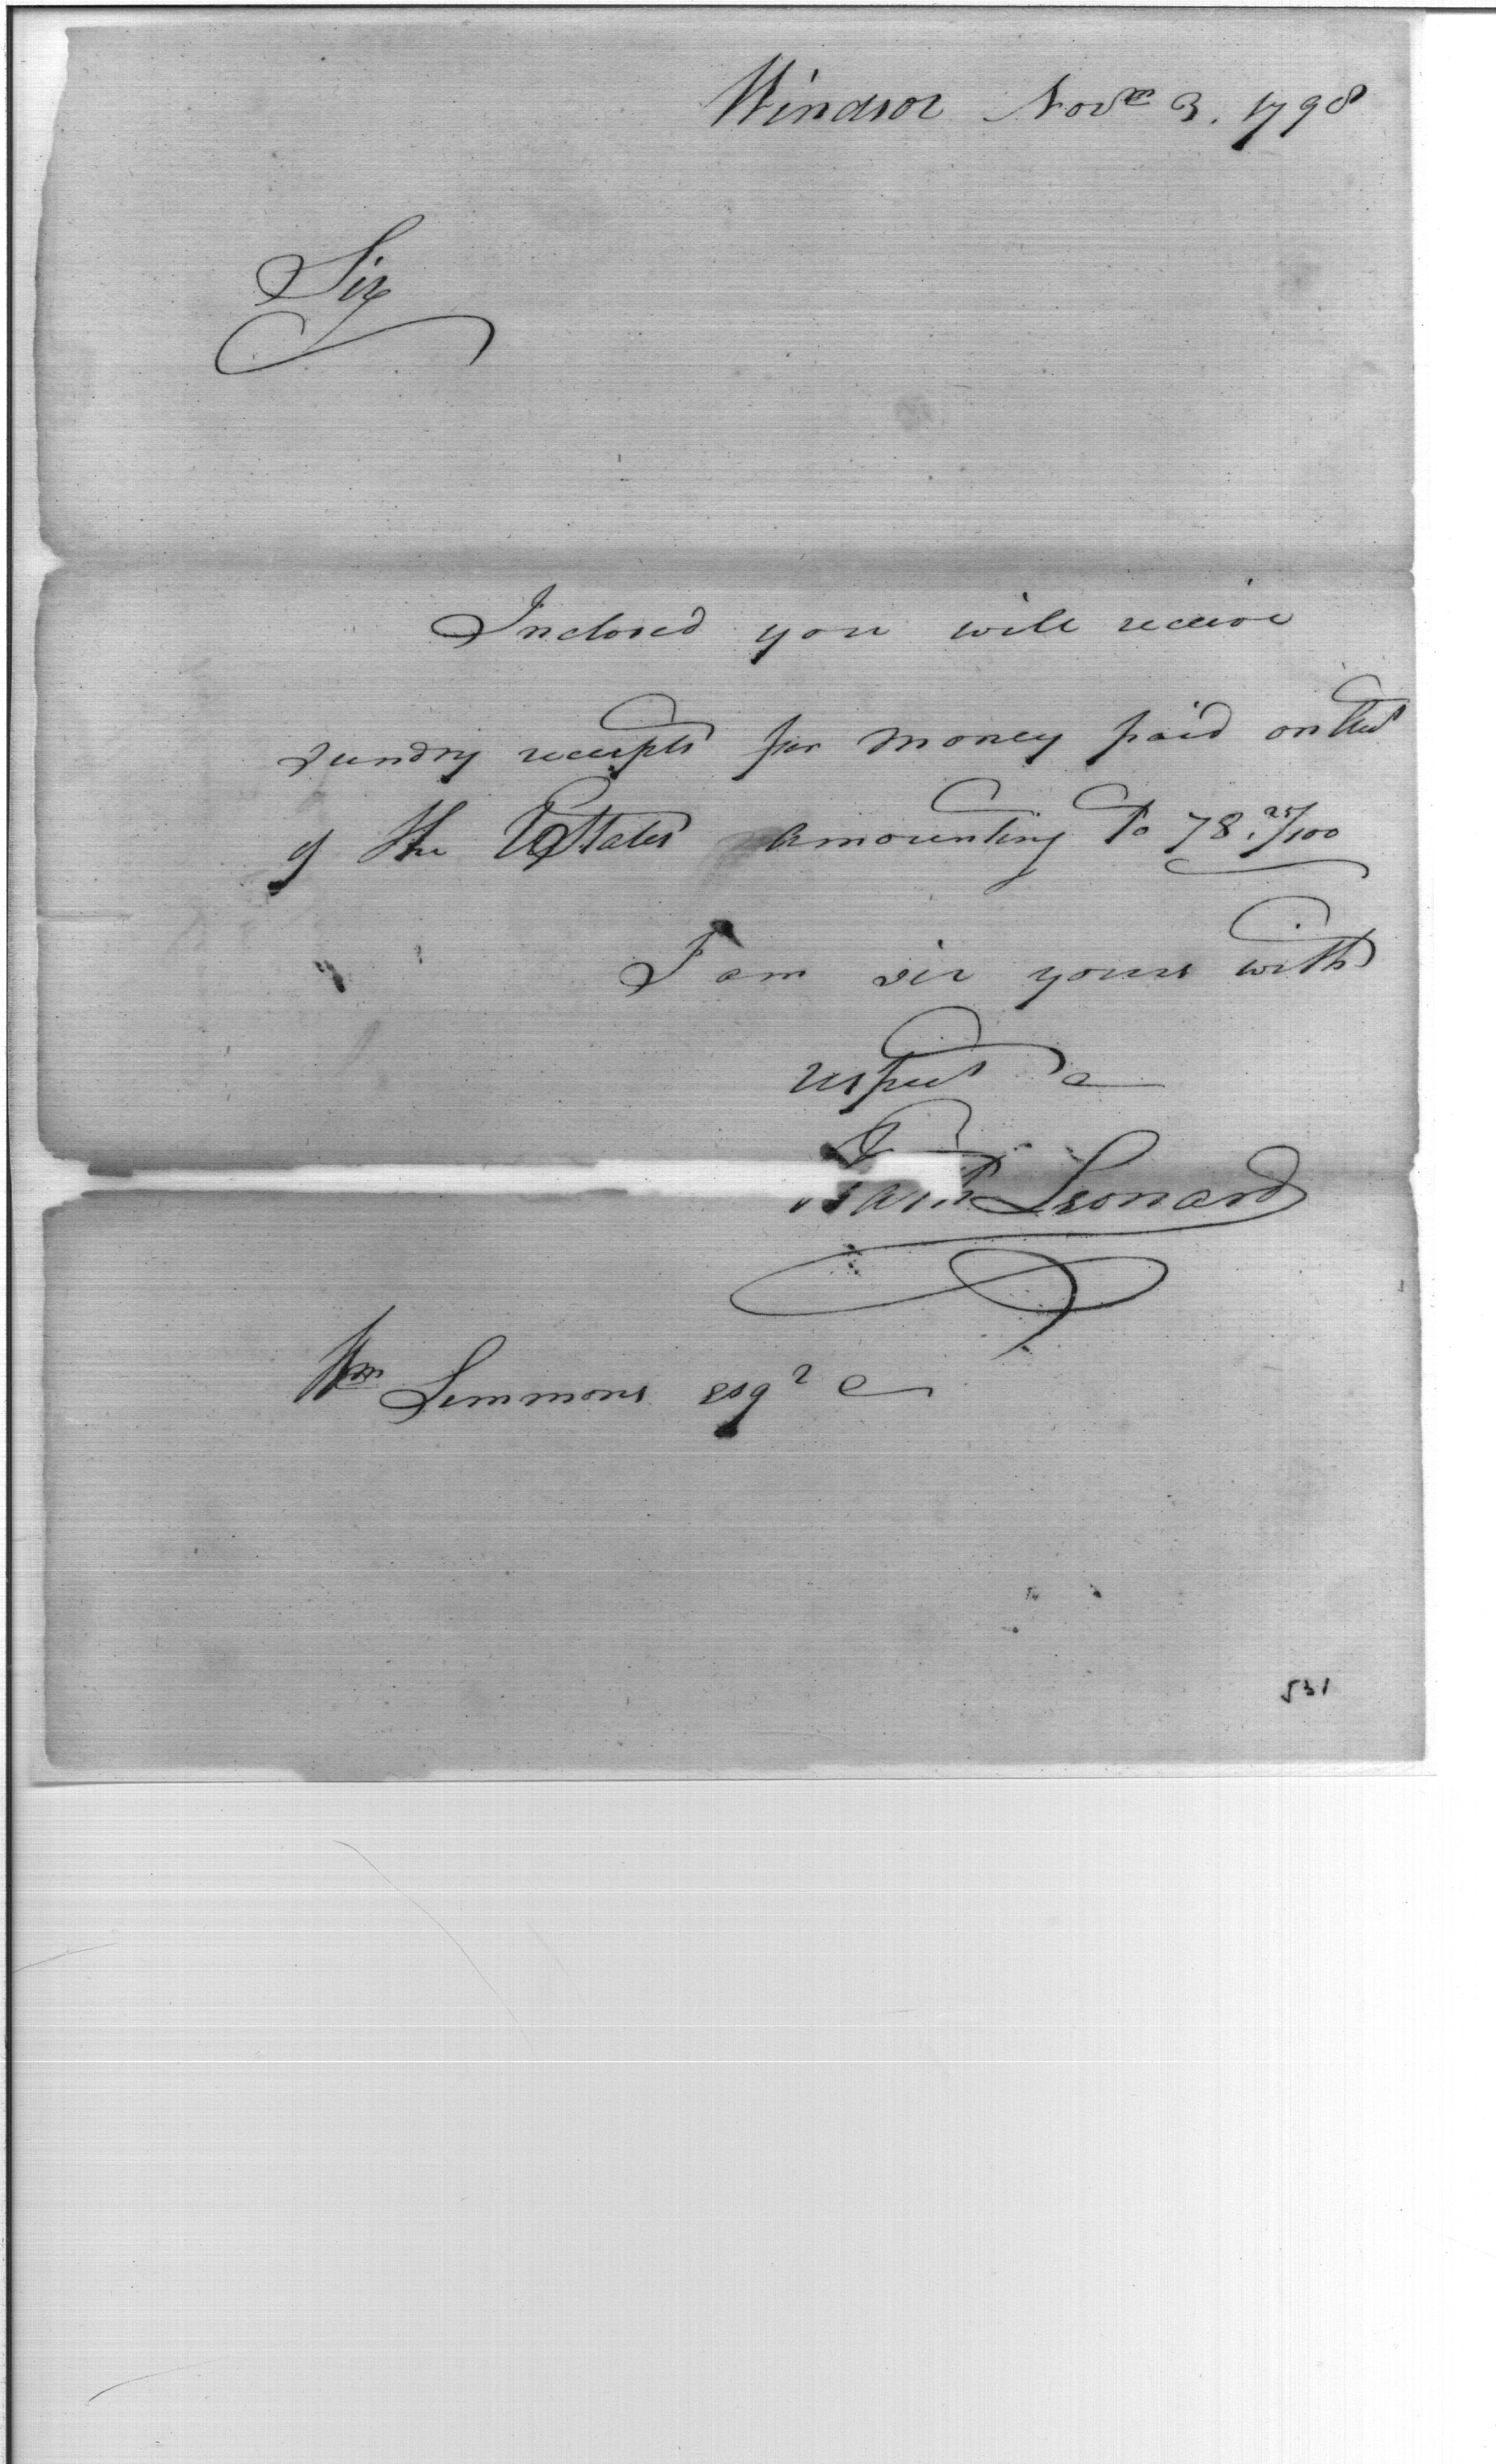 Windsor Novm 3. 1798
Sir
Inclosed you will receive
sundry receipts for money paid on
of the UStates amounting to 78.25/100
I am sir yours with
respect
Leonard
Wm Simmons esqr
531